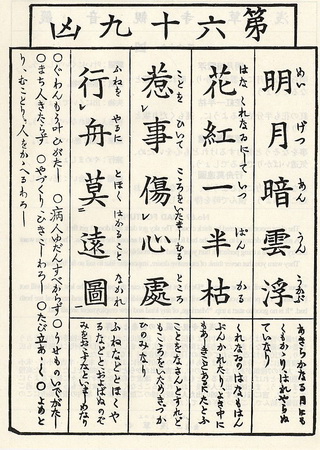 第六十九凶
めいげつあんうんうかぶ
明月暗雲浮
あきらかなる月にも
くもかゝり、はれやらぬ
ていなり
はなくれなゐにしていつぱんかる
花紅一半枯
くれなゐのはなもはん
ぶんかれたり、よき中に
もあしきことあるにたとふ
ことをひいてこころをいたましむるところ
惹レ事傷レ心處
ことをなさんとすれど
もこころをいためきづか
ひのみなり
ふねをやるにとほくはかることなかれ
行レ舟莫二遠圖一
ふねなどとほくや
るなどとおよばぬのぞ
みをおこすなといましめなり
○ぐわんもう叶ひがたし ○病人ゆだんすべからず ○うせものいでがたし
○まち人きたらず ○やづくり、ひきこしわろし ○たび立あしし ○よめと
り、むことり、人をかゝへるわろし